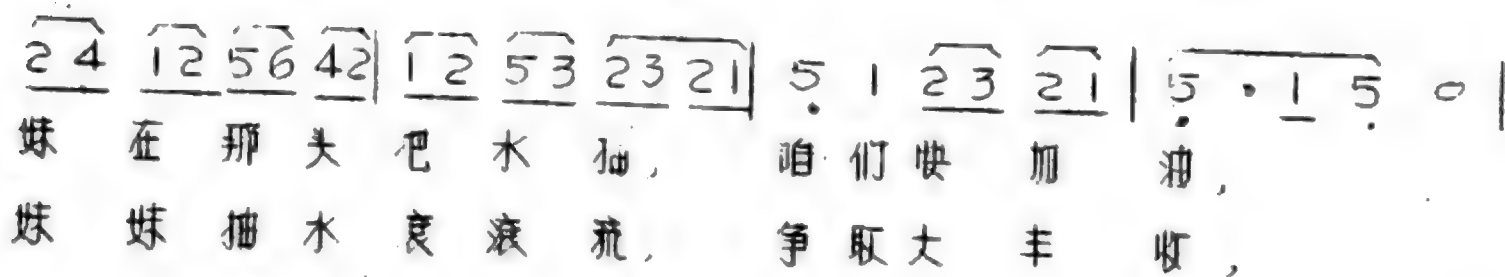 2 4 1 2 5 6 4 2 | 1 2 5 3 2 3 2 1 | 5 1 2 3 2 1 | 5 · 1 5 0 |
妹 在 那 头 把 水 抽， 咱 们 快 加 油，
妹 妹 抽 水 滚 滚 流， 争 取 大 丰 收，